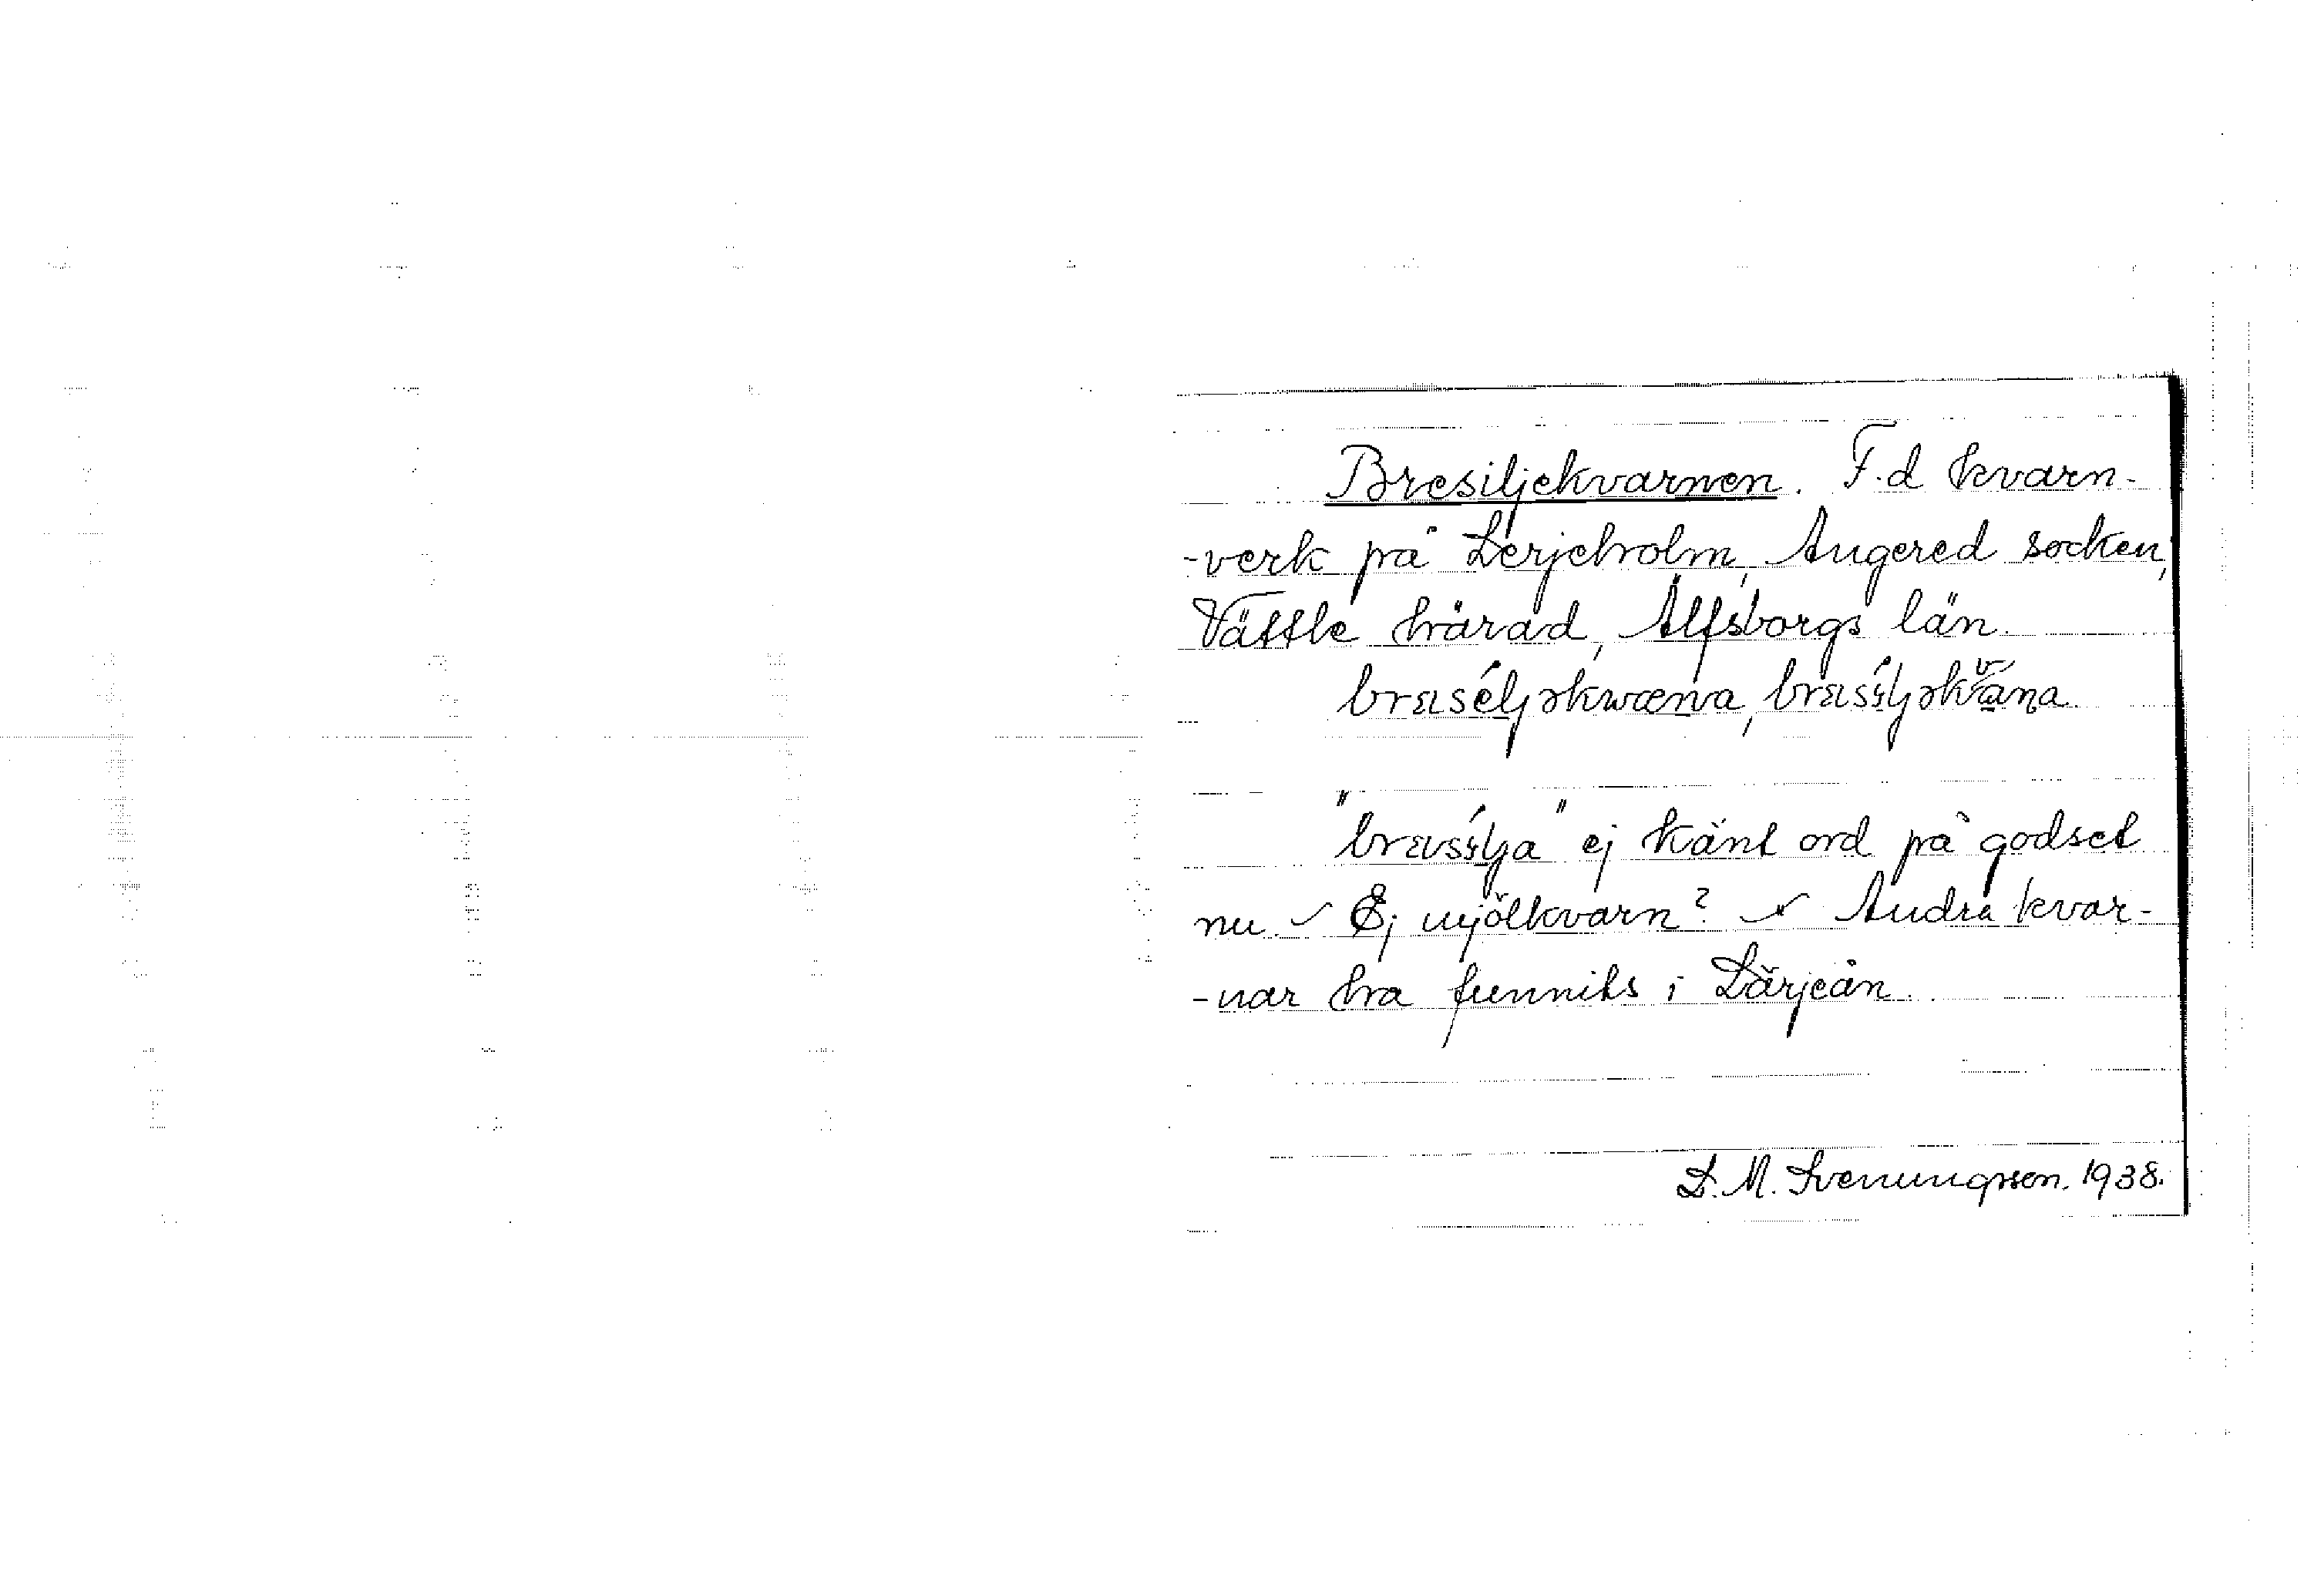 Bresiljekvarnen. F.d kvarn-
-verk på Lerjeholm, Angered socken,
Vättle härad, Älfsborgs län.
"brɛsilja" ej känt ord på godset
nu. Ej mjölkvarn? Andra kvar-
-nar ha funnits i Lärjeån.
D. M. Svenungsson. 1938.